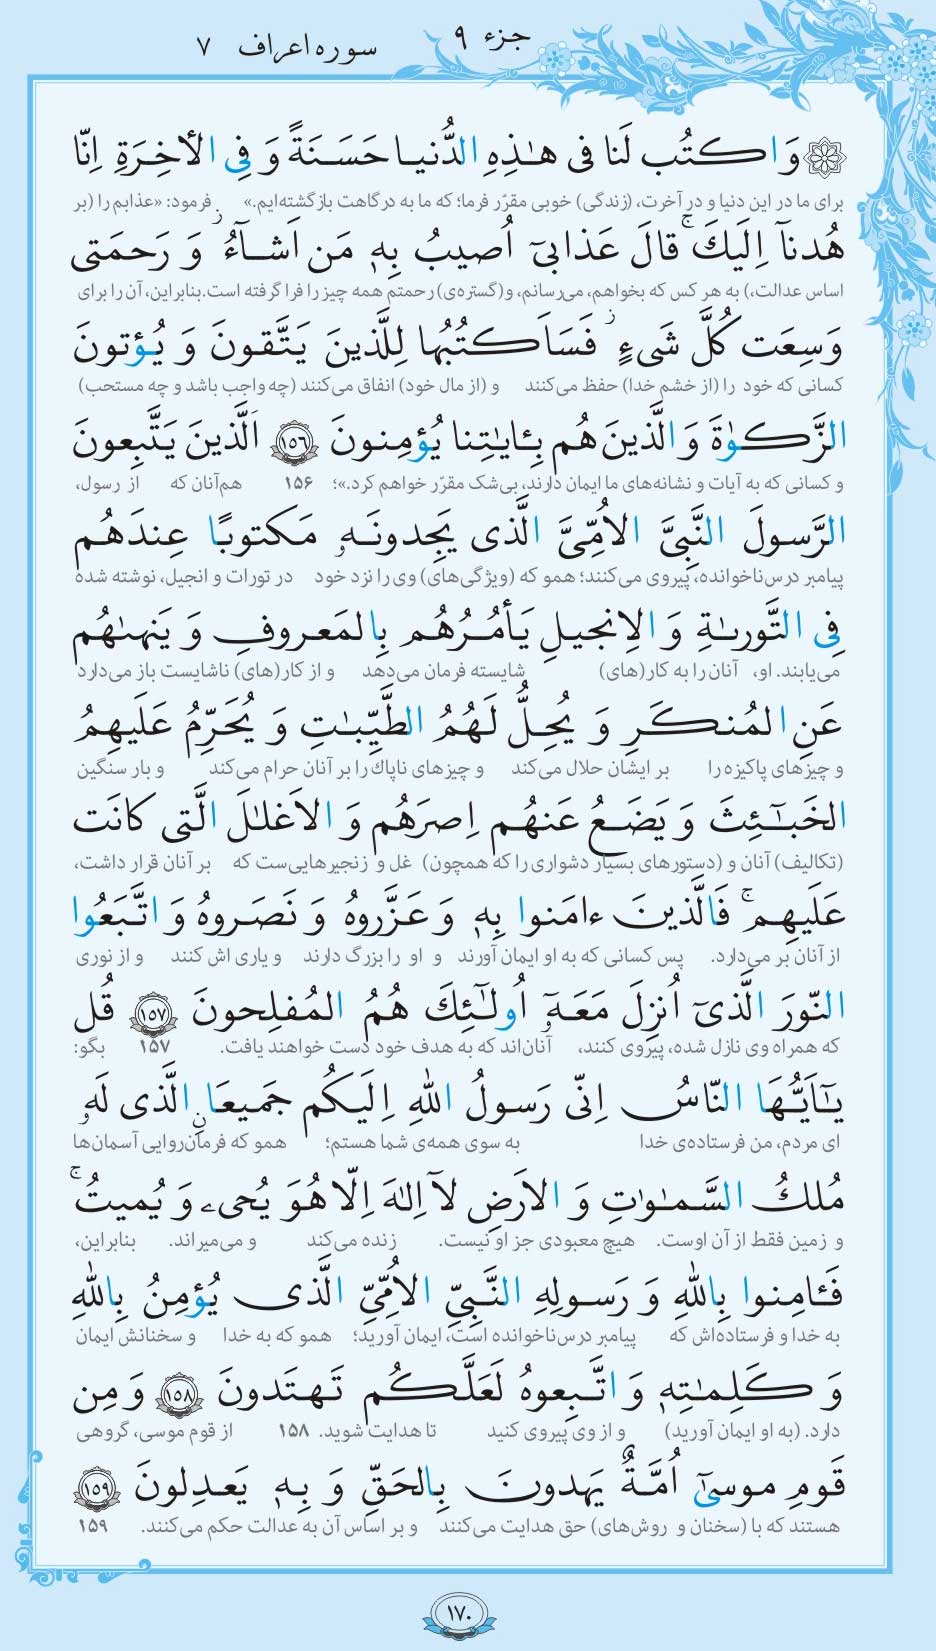 جزء ۹
سوره اعراف ۷
وَ اكتُب لَنا فى هـٰذِهِ الدُّنيا حَسَنَةً وَ فِى الأخِرَةِ اِنّا
برای ما در این دنیا و در آخرت، (زندگی) خوبی مقرّر فرما؛ که ما به درگاهت بازگشته‌ایم.» فرمود: «عذابم را (بر
هُدنآ اِلَيكَ ۚ قالَ عَذابىٓ اُصيبُ بِهٖ مَن اَشآءُ ۖ وَ رَحمَتى
اساس عدالت،) به هر کس که بخواهم، می‌رسانم، و(گستره‌ی) رحمتم همه چیز را فرا گرفته است.بنابراین، آن را برای
وَسِعَت كُلَّ شَىءٍ ۚ فَسَاَكتُبُها لِلَّذينَ يَتَّقونَ وَ يُؤتونَ
کسانی که خود را (از خشم خدا) حفظ می‌کنند و (از مال خود) انفاق می‌کنند (چه واجب باشد و چه مستحب)
الزَّكوٰةَ وَ الَّذينَ هُم بِـٔايٰتِنا يُؤمِنونَ ﴿١٥٦﴾ اَلَّذينَ يَتَّبِعونَ
و کسانی که به آیات و نشانه‌های ما ایمان دارند، بی‌شک مقرّر خواهم کرد.»؛ ۱۵۶ هم‌آنان که از رسول،
الرَّسولَ النَّبِىَّ الاُمِّىَّ الَّذى يَجِدونَهٗ مَكتوبًا عِندَهُم
پیامبر درس‌ناخوانده، پیروی می‌کنند؛ همو که (ویژگی‌های) وی را نزد خود در تورات و انجیل، نوشته شده
فِى التَّورىٰةِ وَ الاِنجيلِ يَأمُرُهُم بِالمَعروفِ وَ يَنهىٰهُم
می‌یابند. او، آنان را به کار(های) شایسته فرمان می‌دهد و از کار(های) ناشایست باز می‌دارد
عَنِ المُنكَرِ وَ يُحِلُّ لَهُمُ الطَّيِّبـٰتِ وَ يُحَرِّمُ عَلَيهِمُ
و چیزهای پاکیزه را بر ایشان حلال می‌کند و چیزهای ناپاک را بر آنان حرام می‌کند و بار سنگین
الخَبـٰٓئِثَ وَ يَضَعُ عَنهُم اِصرَهُم وَ الاَغلـٰلَ الَّتى كانَت
(تکالیف) آنان و (دستورهای بسیار دشواری را که همچون) غل و زنجیرهایی‌ست که بر آنان قرار داشت،
عَلَيهِم ۚ فَالَّذينَ ءامَنوا بِهٖ وَ عَزَّروهُ وَ نَصَروهُ وَ اتَّبَعُوا
از آنان بر می‌دارد. پس کسانی که به او ایمان آورند و او را بزرگ دارند و یاری اش کنند و از نوری
النّورَ الَّذىٓ اُنزِلَ مَعَهٗٓ اُولـٰٓئِكَ هُمُ المُفلِحونَ ﴿١٥٧﴾ قُل
که همراه وی نازل شده، پیروی کنند، آنان‌اند که به هدف خود دست خواهند یافت. ۱۵۷ بگو:
يـٰٓاَيُّهَا النّاسُ اِنّى رَسولُ اللّٰهِ اِلَيكُم جَميعَانِ الَّذى لَهٗ
ای مردم، من فرستاده‌ی خدا به سوی همه‌ی شما هستم؛ همو که فرمان‌روایی آسمان‌ها
مُلكُ السَّمـٰوٰتِ وَ الاَرضِ لآ اِلـٰهَ اِلّا هُوَ يُحىٖ وَ يُميتُ ۚ
و زمین فقط از آن اوست. هیچ معبودی جز او نیست. زنده می‌کند و می‌میراند. بنابراین،
فَـٔامِنوا بِاللّٰهِ وَ رَسولِهِ النَّبِىِّ الاُمِّىِّ الَّذى يُؤمِنُ بِاللّٰهِ
به خدا و فرستاده‌اش که پیامبر درس‌ناخوانده است، ایمان آورید؛ همو که به خدا و سخنانش ایمان
وَ كَلِمـٰتِهٖ وَ اتَّبِعوهُ لَعَلَّكُم تَهتَدونَ ﴿١٥٨﴾ وَ مِن
دارد. (به او ایمان آورید) و از وی پیروی کنید تا هدایت شوید. ۱۵۸ از قوم موسی، گروهی
قَومِ موسىٰٓ اُمَّةٌ يَهدونَ بِالحَقِّ وَ بِهٖ يَعدِلونَ ﴿١٥٩﴾
هستند که با (سخنان و روش‌های) حق هدایت می‌کنند و بر اساس آن به عدالت حکم می‌کنند. ۱۵۹
۱۷۰